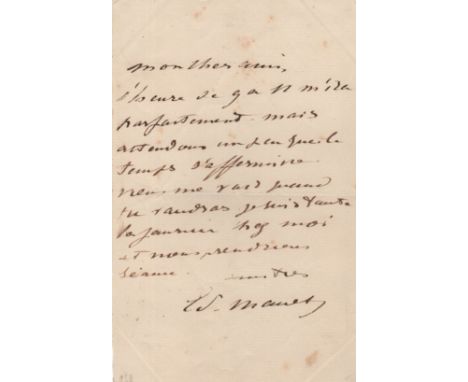 mon cher ami,
l'heure de 9 à 11 m'ira
parfaitement mais
attendons un peu que le
temps s'affermisse.
viens me voir quand
tu voudras je suis toute
la journée chez moi
et nous prendrons
séance.
amitiés
Ed. Manet